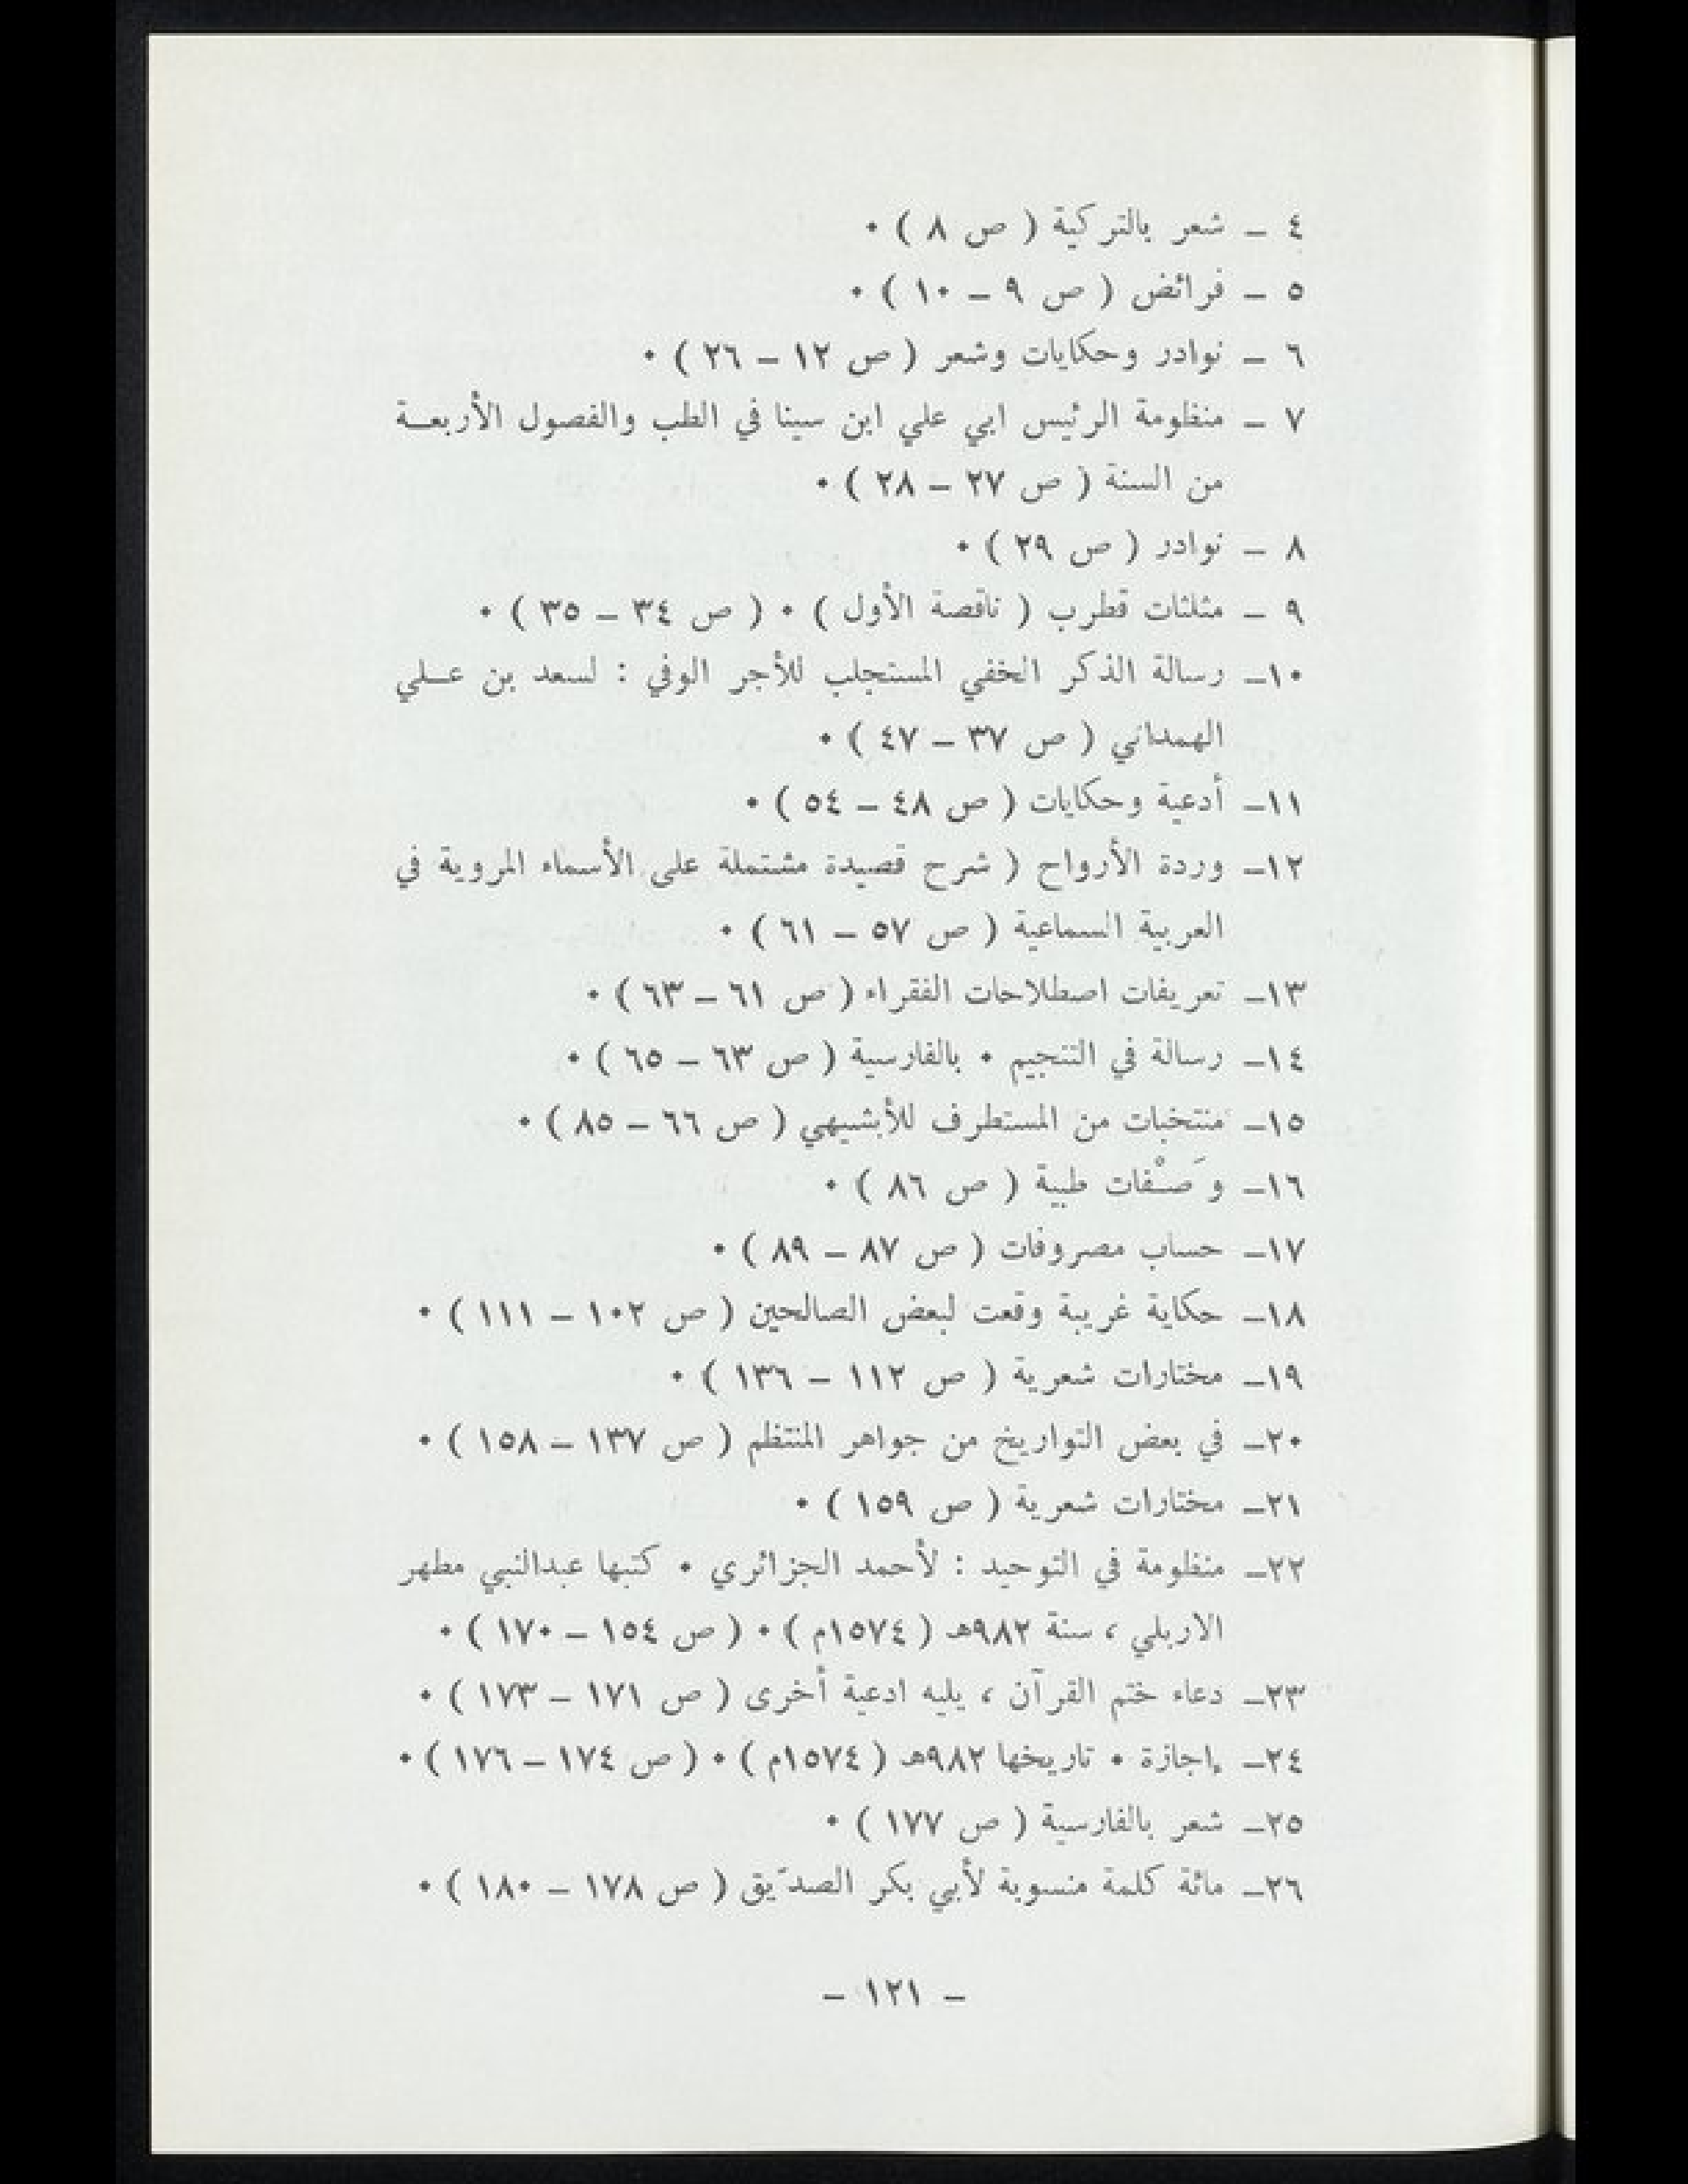 ٤ ــ شعر بالتركية ( ص ٨ ) ٠
٥ ــ فرائض ( ص ٩ ــ ١٠ ) ٠
٦ ــ نوادر وحكايات وشعر ( ص ١٢ ــ ٢٦ ) ٠
٧ ــ منظومة الرئيس ابي علي ابن سينا في الطب والفصول الأربعــة
من السنة ( ص ٢٧ ــ ٢٨ ) ٠
٨ ــ نوادر ( ص ٢٩ ) ٠
٩ ــ مثلثات قطرب ( ناقصة الأول ) ٠ ( ص ٣٤ ــ ٣٥ ) ٠
١٠ــ رسالة الذكر الخفي المستجلب للأجر الوفي : لسعد بن عــلي
الهمداني ( ص ٣٧ ــ ٤٧ ) ٠
١١ــ أدعية وحكايات ( ص ٤٨ ــ ٥٤ ) ٠
١٢ــ وردة الأرواح ( شرح قصيدة مشتملة على الأسماء المروية في
العربية السماعية ( ص ٥٧ ــ ٦١ ) ٠
١٣ــ تعريفات اصطلاحات الفقراء ( ص ٦١ ــ ٦٣ ) ٠
١٤ــ رسالة في التنجيم ٠ بالفارسية ( ص ٦٣ ــ ٦٥ ) ٠
١٥ــ منتخبات من المستطرف للأبشيهي ( ص ٦٦ ــ ٨٥ ) ٠
١٦ــ وَصْفات طبية ( ص ٨٦ ) ٠
١٧ــ حساب مصروفات ( ص ٨٧ ــ ٨٩ ) ٠
١٨ــ حكاية غريبة وقعت لبعض الصالحين ( ص ١٠٢ ــ ١١١ ) ٠
١٩ــ مختارات شعرية ( ص ١١٢ ــ ١٣٦ ) ٠
٢٠ــ في بعض التواريخ من جواهر المنتظم ( ص ١٣٧ ــ ١٥٨ ) ٠
٢١ــ مختارات شعرية ( ص ١٥٩ ) ٠
٢٢ــ منظومة في التوحيد : لأحمد الجزائري ٠ كتبها عبدالنبي مطهر
الاربلي ، سنة ٩٨٢هـ ( ١٥٧٤م ) ٠ ( ص ١٥٤ ــ ١٧٠ ) ٠
٢٣ــ دعاء ختم القرآن ، يليه ادعية أخرى ( ص ١٧١ ــ ١٧٣ ) ٠
٢٤ــ إجازة ٠ تاريخها ٩٨٢هـ ( ١٥٧٤م ) ٠ ( ص ١٧٤ ــ ١٧٦ ) ٠
٢٥ــ شعر بالفارسية ( ص ١٧٧ ) ٠
٢٦ــ مائة كلمة منسوبة لأبي بكر الصدّيق ( ص ١٧٨ ــ ١٨٠ ) ٠
ــ ١٢١ ــ